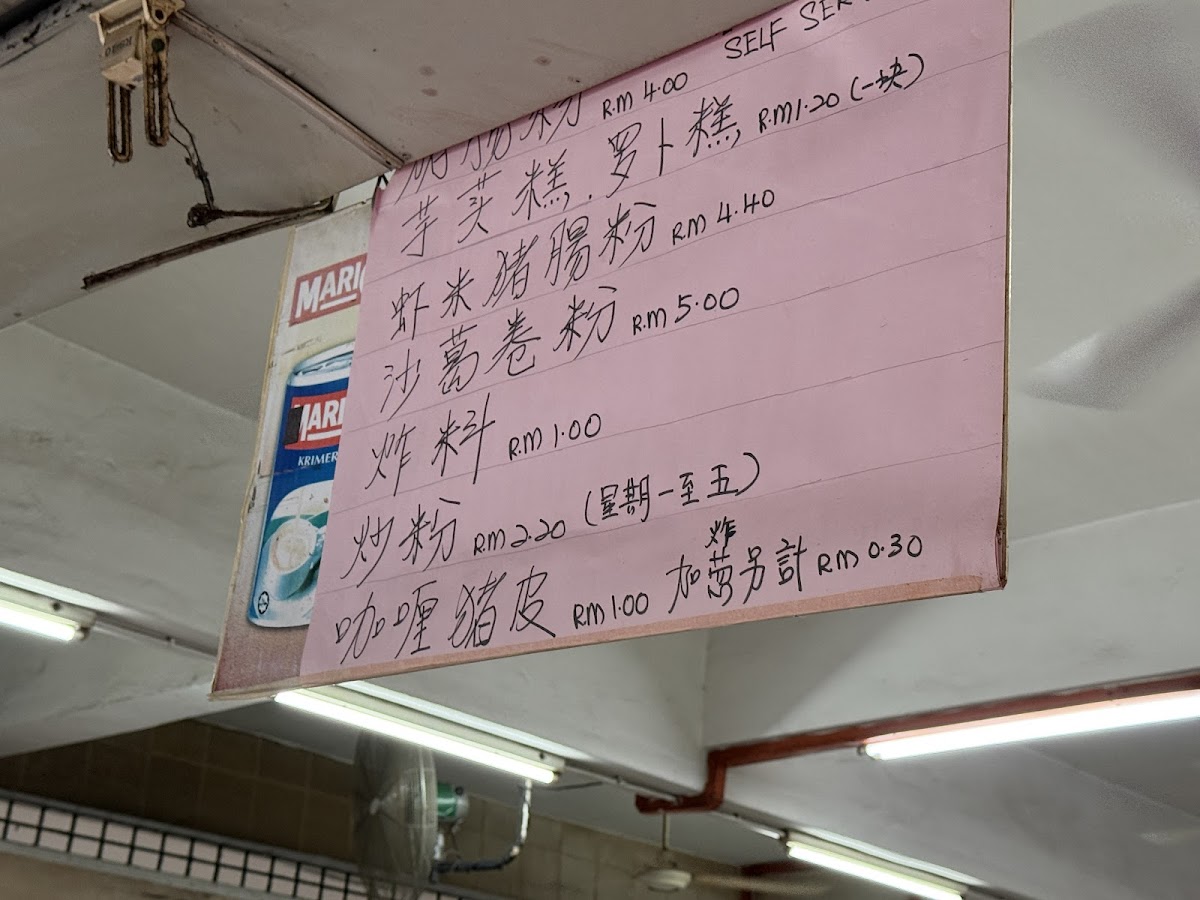 SELF SER
粉 RM 4.00
芋 糕. 罗卜糕 RM1.20 (一块)
虾米猪腸粉 RM 4.40
沙葛卷粉 RM 5.00
炸料 RM 1.00
炒粉 RM 2.20 (星期一至五)
咖喱猪皮 RM 1.00 加炸葱另計 RM 0.30
MARI
MARI
KRIMER